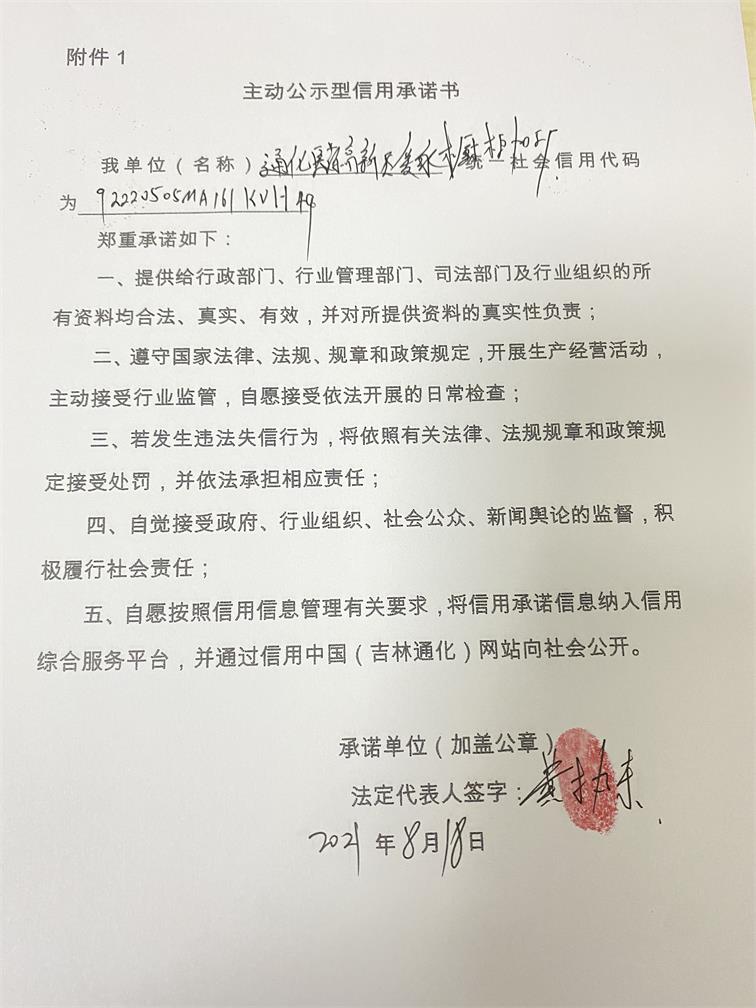 附件 1
主动公示型信用承诺书
我单位（名称）通化医药高新区 统一社会信用代码
为 92220505MA161KVH49
郑重承诺如下：
一、提供给行政部门、行业管理部门、司法部门及行业组织的所
有资料均合法、真实、有效，并对所提供资料的真实性负责；
二、遵守国家法律、法规、规章和政策规定，开展生产经营活动，
主动接受行业监管，自愿接受依法开展的日常检查；
三、若发生违法失信行为，将依照有关法律、法规规章和政策规
定接受处罚，并依法承担相应责任；
四、自觉接受政府、行业组织、社会公众、新闻舆论的监督，积
极履行社会责任；
五、自愿按照信用信息管理有关要求，将信用承诺信息纳入信用
综合服务平台，并通过信用中国（吉林通化）网站向社会公开。
承诺单位（加盖公章）
法定代表人签字：
2021 年 8 月 18 日